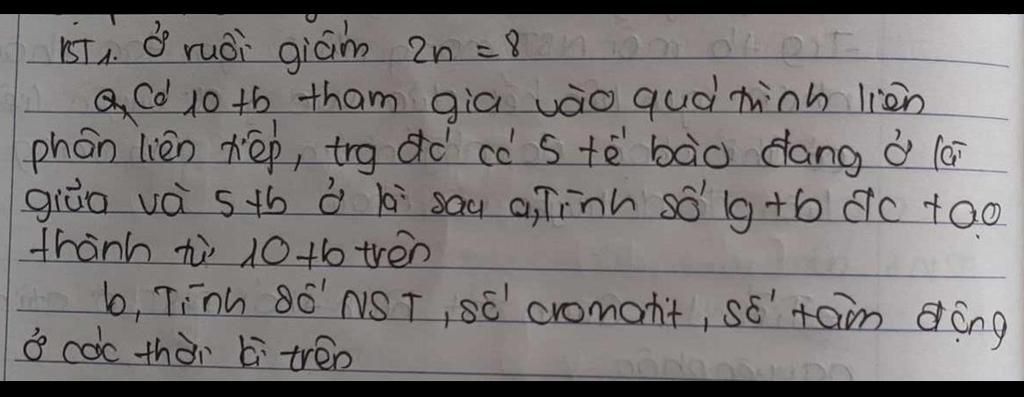 BT1. Ở ruồi giấm 2n = 8
a, Có 10 tb tham gia vào quá trình liên
phân liên tiếp, trg đó có 5 tế bào đang ở kì
giữa và 5 tb ở kì sau a, Tính số lg tb đc tạo
thành từ 10 tb trên
b, Tính số NST, số cromatit, số tâm động
ở các thời kì trên